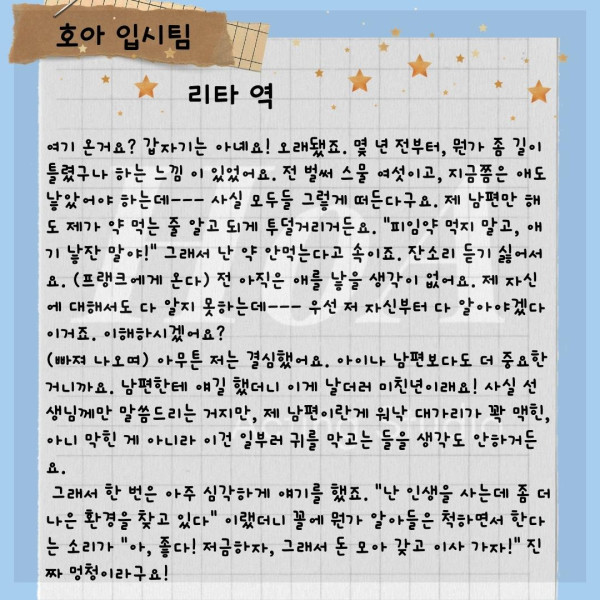 호아 입시팀
리타 역
여기 온거요? 갑자기는 아녜요! 오래됐죠. 몇 년 전부터, 뭔가 좀 길이
틀렸구나 하는 느낌 이 있었어요. 전 벌써 스물 여섯이고, 지금쯤은 애도
낳았어야 하는데--- 사실 모두들 그렇게 떠든다구요. 제 남편만 해
도 제가 약 먹는 줄 알고 되게 투덜거리거든요. "피임약 먹지 말고, 얘
기 낳잔 말야!" 그래서 난 약 안먹는다고 속이죠. 잔소리 듣기 싫어서
요. (프랭크에게 온다) 전 아직은 애를 낳을 생각이 없어요. 제 자신
에 대해서도 다 알지 못하는데--- 우선 저 자신부터 다 알아야겠다
이거죠. 이해하시겠어요?
(빠져 나오며) 아무튼 저는 결심했어요. 아이나 남편보다도 더 중요한
거니까요. 남편한테 얘길 했더니 이게 날더러 미친년이래요! 사실 선
생님께만 말씀드리는 거지만, 제 남편이란게 워낙 대가리가 꽉 맥힌,
아니 막힌 게 아니라 이건 일부러 귀를 막고는 들을 생각도 안하거든
요.
그래서 한 번은 아주 심각하게 얘기를 했죠. "난 인생을 사는데 좀 더
나은 환경을 찾고 있다" 이랬더니 꼴에 뭔가 알아들은 척하면서 한다
는 소리가 "아, 좋다! 저금하자, 그래서 돈 모아 갖고 이사 가자!" 진
짜 멍청이라구요!
HoA
Acting Studio